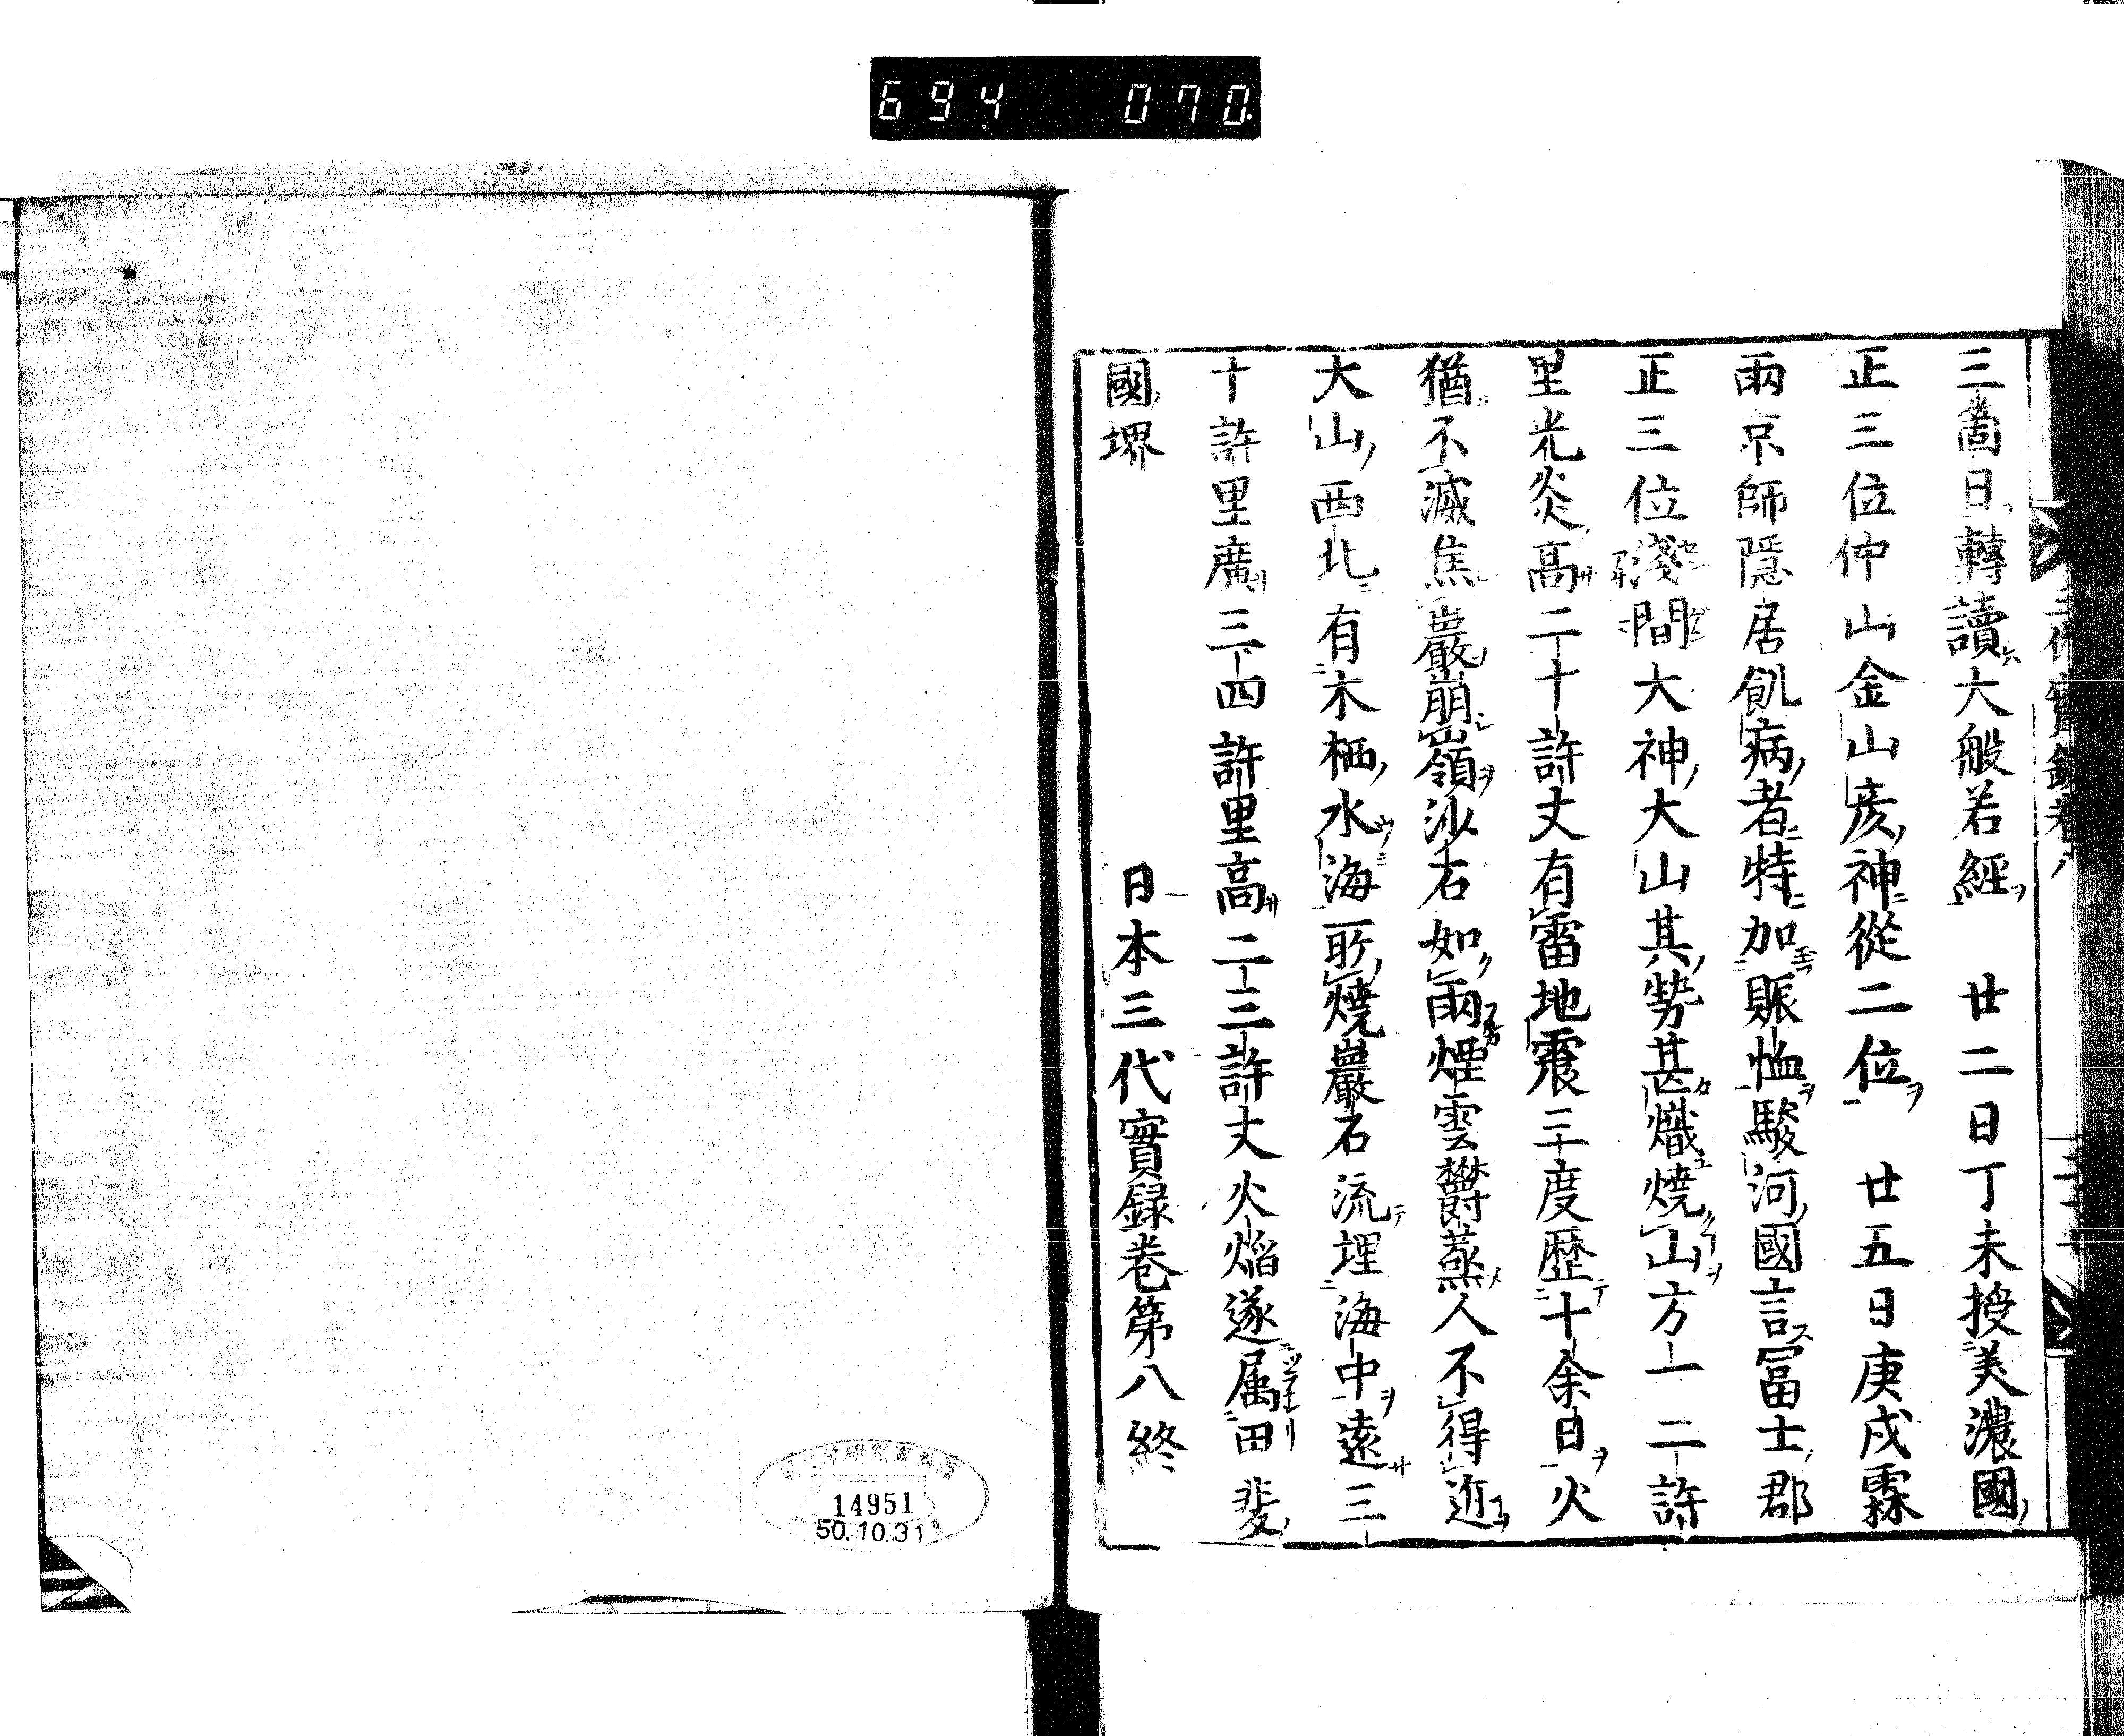 694 070.
三箇日轉讀大般若經 廿二日丁未授美濃國
正三位仲山金山彦神從二位 廿五日庚戌霖
兩京師隱居飢病者特加賑恤駿河國言冨士郡
正三位淺間大神大山其勢甚熾燒山方一二許
里光炎高二十許丈有雷地震三度歷十余日火
猶不滅焦巖崩嶺沙石如雨煙雲欝蒸人不得近
大山西北有木栖水海所燒巖石流埋海中遠三
十許里廣三四許里高二三許丈火焔遂属甲斐
國堺
日本三代實録卷第八終
14951
50.10.31